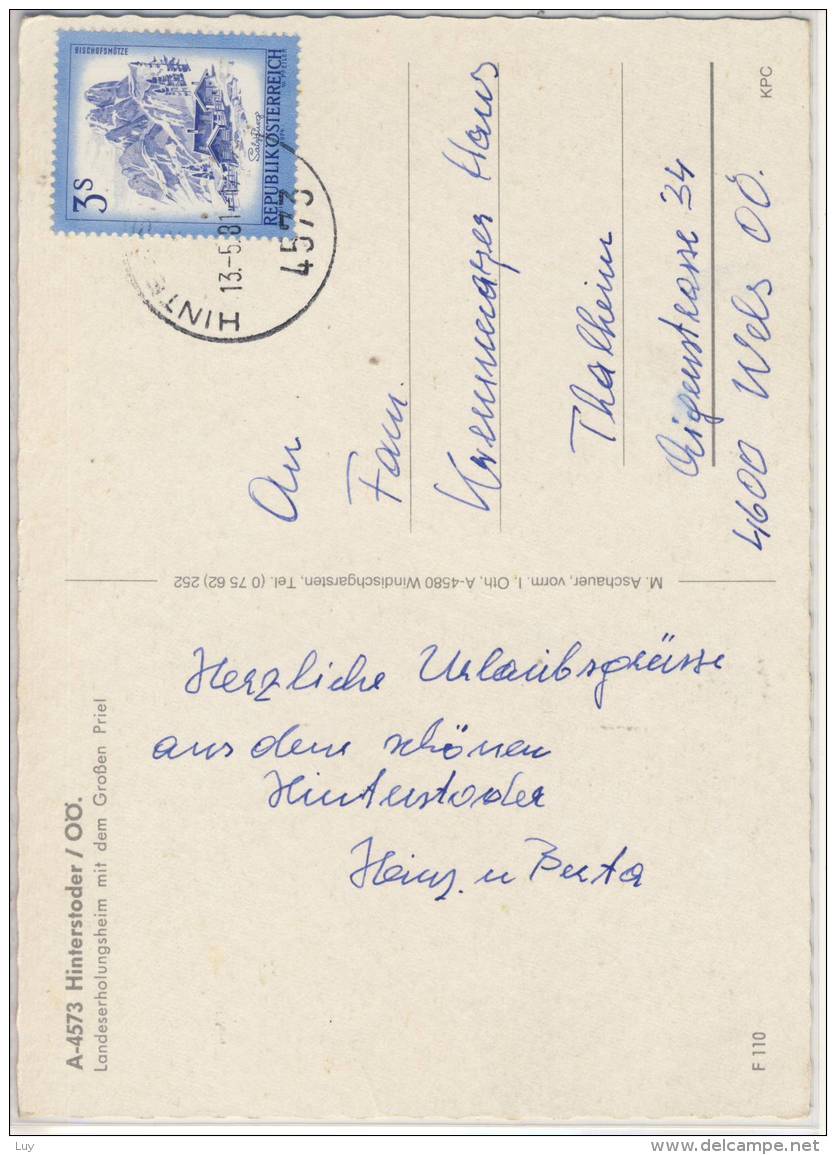 A-4573 Hinterstoder / OÖ.
Landeserholungsheim mit dem Großen Priel
Herzliche Urlaubsgrüsse
aus dem schönen
Hinterstoder
Heinz u Berta
F 110
M. Aschauer, vorm. I. Oth, A-4580 Windischgarsten, Tel. (0 75 62) 252
BISCHOFSMÜTZE
3 S
REPUBLIK ÖSTERREICH
Salzburg
HINTE
13.-5.81
4573
An
Fam.
Hans
Thalheim
34
4600 Wels OÖ.
KPC
Luy
www.delcampe.net